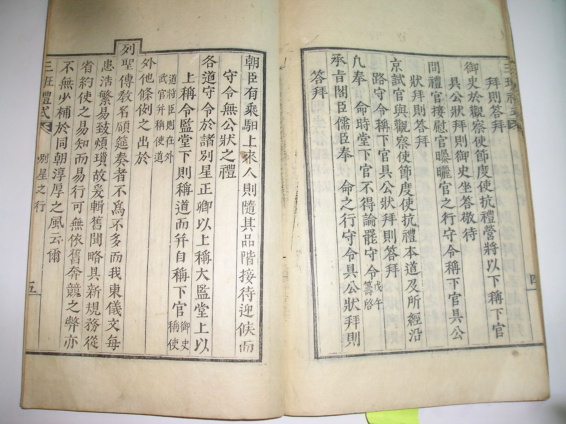 拜則答拜
御史於觀察使節度使抗禮營將以下稱下官
具公狀拜則御史坐答敬待
問禮官接慰官曬曝官之行守令稱下官具公
狀拜則答拜
京試官與觀察使節度使抗禮本道及所經沿
路守令稱下官具公狀拜則答拜
凡奉 命時堂下官不得論罷守令戊午筵啓
承旨閣臣儒臣奉 命之行守令具公狀拜則
答拜
朝臣有乘馹上來人則隨其品階接待迎候而
守令無公狀之禮
各道守令於諸別星正卿以上稱大監堂上以
上稱令監堂下則稱道而幷自稱下官御史稱使
道將臣則在外武官幷稱使道
外他條例之出於
列聖傳敎名碩筵奏者不爲不多而我東儀文每
患浩繁易致煩瑣故玆蹔舊聞略具新規務從
省約使之易知而易行可無依舊競之弊亦
不無少補於同朝淳厚之風云爾
三班禮式 別星之行 五